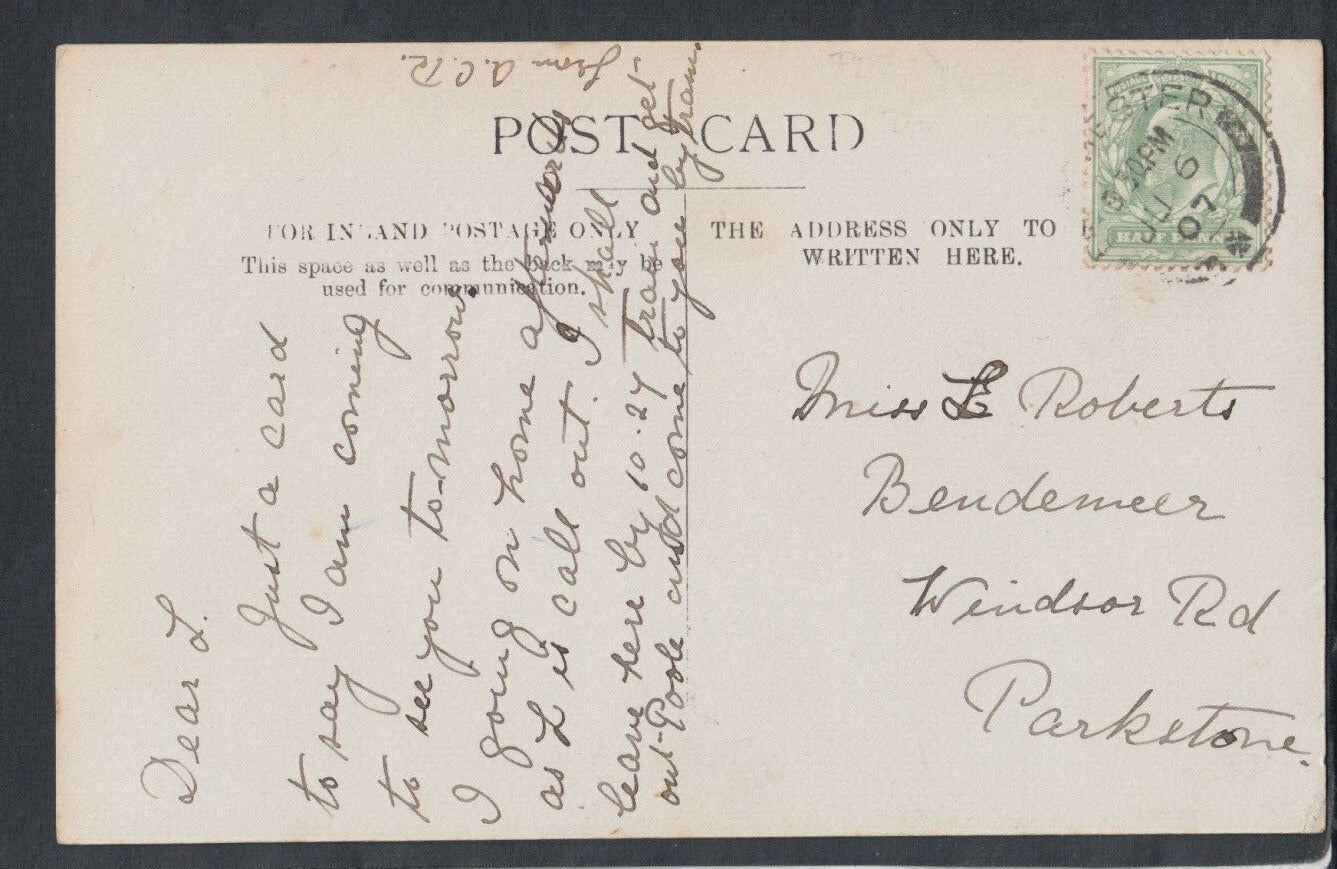 POST CARD
FOR INLAND POSTAGE ONLY
This space as well as the back may be
used for communication.
THE ADDRESS ONLY TO
WRITTEN HERE.
HALF PENNY
ESTER
30 PM
JU 6
07
Miss L Roberts
Bendemeer
Windsor Rd
Parkstone.
Dear L.
Just a card
to say I am coming
to see you to-morrow.
I going on home afterwards
as L is call out. I shall
leave here by 10.27 train and get
out Poole and come to you by tram.
from A.C.R.